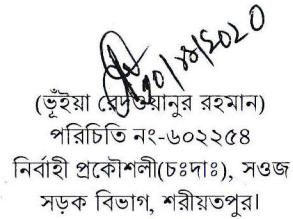 (ভূঁইয়া রেদওয়ানুর রহমান)
পরিচিতি নং-৬০২২৫৪
নির্বাহী প্রকৌশলী(চঃদাঃ), সওজ
সড়ক বিভাগ, শরীয়তপুর।